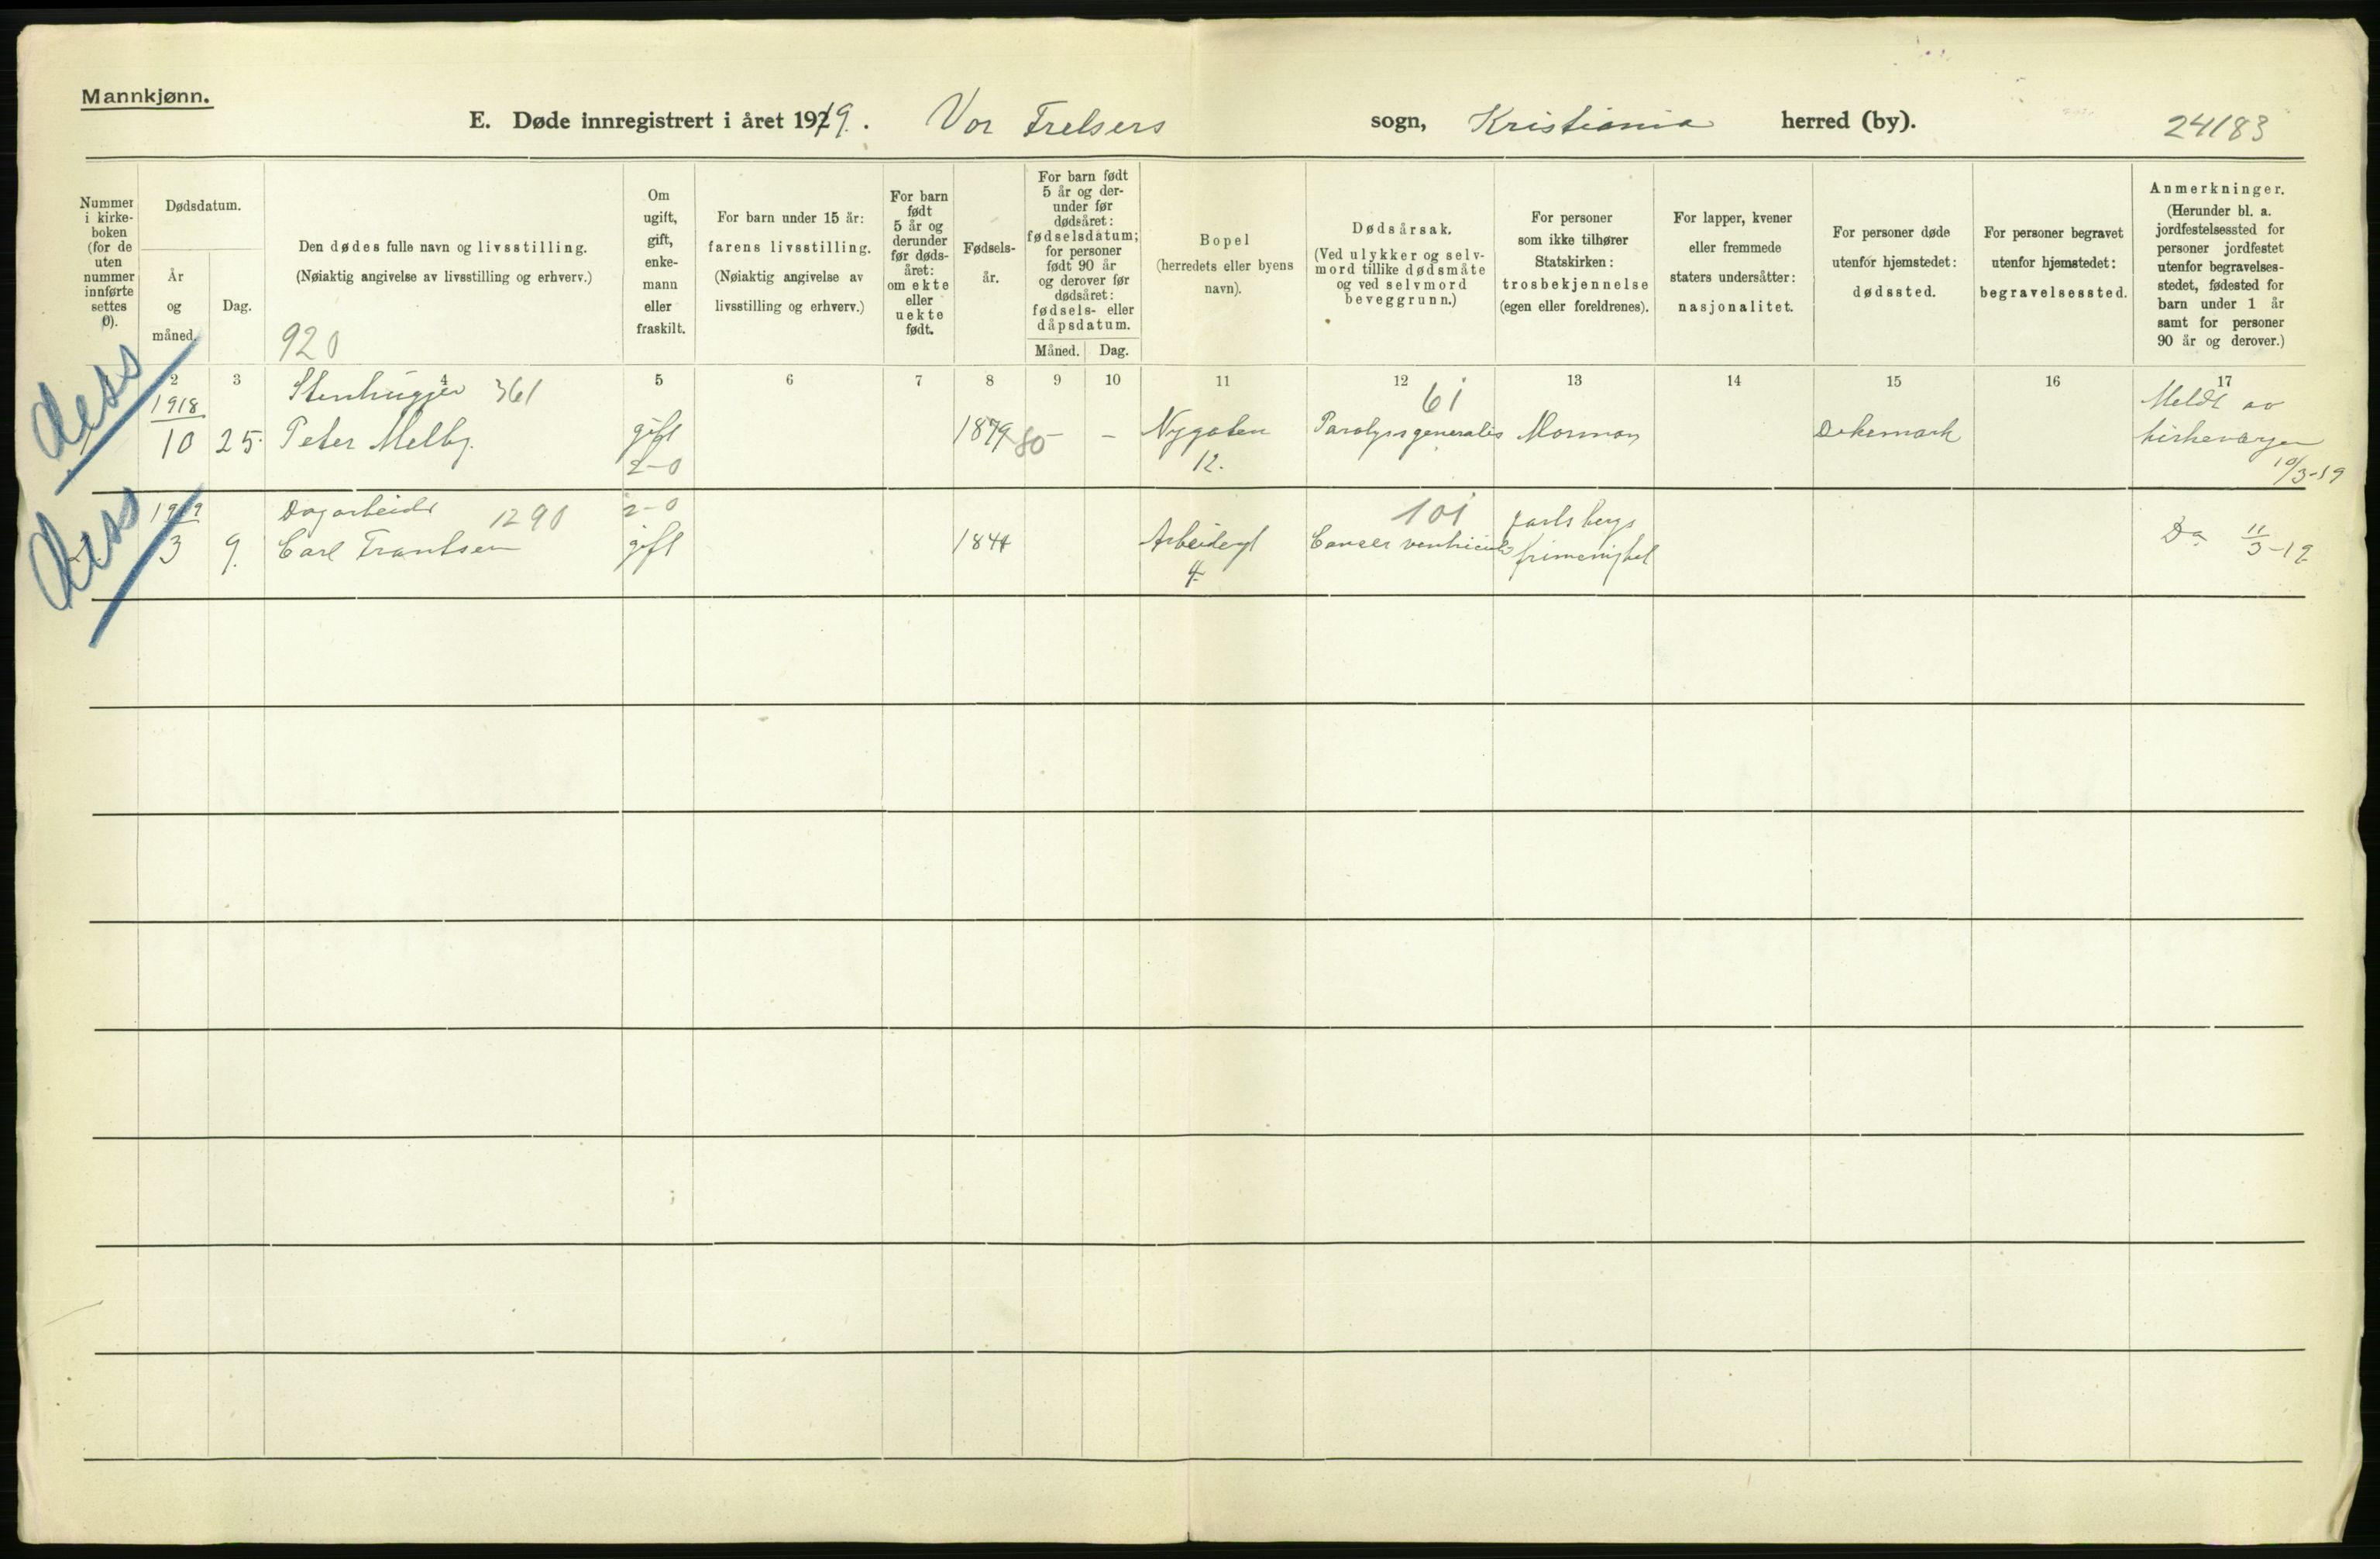 Mannkjønn.
E. Døde innregistrert i året 1919. Vor Frelsers sogn, Kristiania herred (by). 24183
Nummer i kirke-boken (for de uten nummer innførte settes 0).
Dødsdatum.
År og måned.
Dag.
Den dødes fulle navn og livsstilling.
(Nøiaktig angivelse av livsstilling og erhverv.)
920
Om ugift, gift, enke-mann eller fraskilt.
For barn under 15 år:
farens livsstilling.
(Nøiaktig angivelse av
livsstilling og erhverv.)
For barn født 5 år og derunder før døds-året: om ekte eller uekte født.
Fødsels-år.
For barn født 5 år og der-under før dødsåret: fødselsdatum; for personer født 90 år og derover før dødsåret: fødsels- eller dåpsdatum.
Måned. Dag.
Bopel
(herredets eller byens
navn).
Dødsårsak.
(Ved ulykker og selv-
mord tillike dødsmåte
og ved selvmord
beveggrunn.)
For personer
som ikke tilhører
Statskirken:
trosbekjennelse
(egen eller foreldrenes).
For lapper, kvener
eller fremmede
staters undersåtter:
nasjonalitet.
For personer døde
utenfor hjemstedet:
dødssted.
For personer begravet
utenfor hjemstedet:
begravelsessted.
Anmerkninger.
(Herunder bl. a.
jordfestelsessted for
personer jordfestet
utenfor begravelses-
stedet, fødested for
barn under 1 år
samt for personer
90 år og derover.)
2 3 4 5 6 7 8 9 10 11 12 13 14 15 16 17
dess
1918 Stenhugger 361 61 Meldt av
10 25. Peter Melby. gift 1879 80 - - Nygaten Paralysis generalis Mormon Dikemark kirkevergen
2-0 12. 10/3-19
dess
1919 Dagarbeider 1290 2-0 101 Jarlsbergs
2. 3 9. Carl Frantsen gift 1844 Arbeidergt Cancer ventriculi frimenighet Do 11/3-19
4